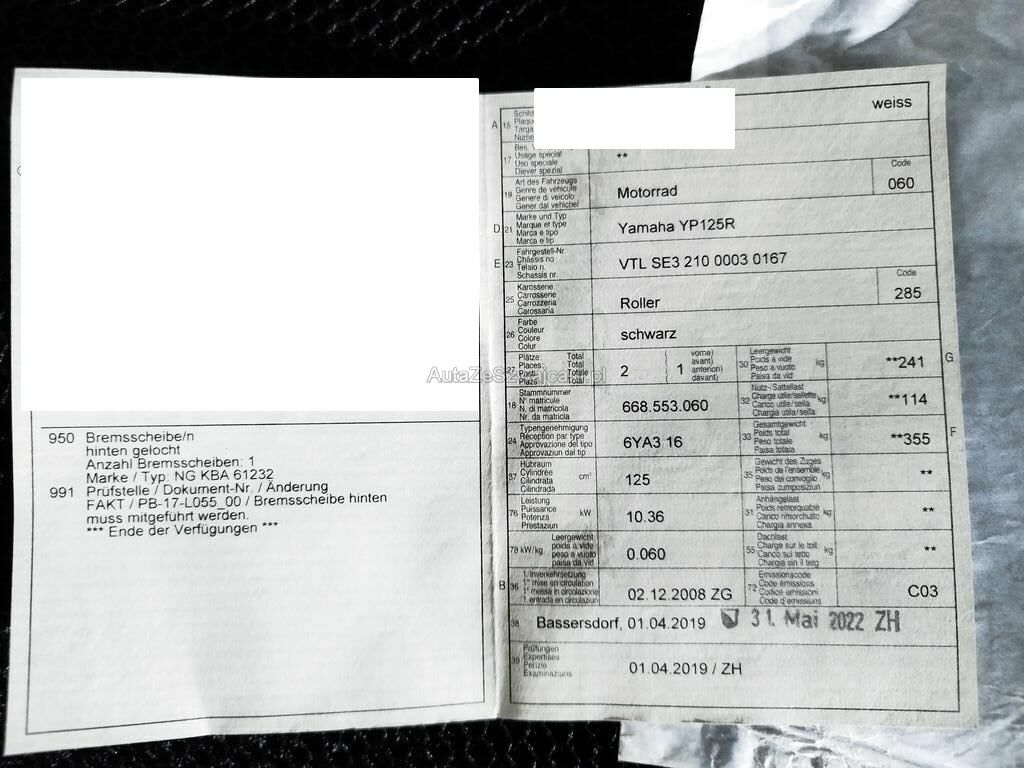 950 Bremsscheibe/n
hinten gelocht
Anzahl Bremsscheiben: 1
Marke / Typ: NG KBA 61232
991 Prüfstelle / Dokument-Nr. / Änderung
FAKT / PB-17-L055_00 / Bremsscheibe hinten
muss mitgeführt werden.
*** Ende der Verfügungen ***
weiss
A 15
17 Usage spécial
Uso speciale
Diever spezial
**
19 Art des Fahrzeugs
Genre de véhicule
Genere di veicolo
Gener dal vehichel
Motorrad
Code
060
D 21 Marke und Typ
Marque et type
Marca e tipo
Marca e tip
Yamaha YP125R
E 23 Fahrgestell-Nr.
Châssis no
Telaio n.
Schassis nr.
VTL SE3 210 0003 0167
25 Karosserie
Carrosserie
Carrozzeria
Carossaria
Roller
Code
285
26 Farbe
Couleur
Colore
Colur
schwarz
27 Plätze: Total
Places: Total
Posti: Totale
Plazs: Total
2
( vorne)
( avant)
1 anterion)
davant)
30 Leergewicht
Poids à vide
Peso a vuoto
Paisa da vid
kg
**241
G
AutaZeSzwajcarii.pl
18 Stammnummer
N° matricule
N. di matricola
Nr. da matricla
668.553.060
32 Nutz-/Sattellast
Charge utile/sellette
Carico utile/sella
Chargia utila/sella
kg
**114
24 Typengenehmigung
Réception par type
Approvazione del tipo
Approvaziun dal tip
6YA3 16
33 Gesamtgewicht
Poids total
Peso totale
Paisa totala
kg
**355
F
37 Hubraum
Cylindrée
Cilindrata
Cilindrada
cm³
125
35 Gewicht des Zuges
Poids de l'ensemble
Peso del convoglio
Paisa cumposiziun
kg
**
76 Leistung
Puissance
Potenza
Prestaziun
kW
10.36
31 Anhängelast
Poids remorquable
Carico rimorchiato
Chargia annexa
kg
**
78 kW/kg
Leergewicht
poids à vide
peso a vuoto
paisa da vid
0.060
55 Dachlast
Charge sur le toit
Carico sul tetto
Chargia sin il tetg
kg
**
B 36 1. Inverkehrsetzung
1re mise en circulation
1a messa in circolazione
1. entrada en circulaziun
02.12.2008 ZG
72 Emissionscode
Code émissions
Codice emissioni
Code d'emissiuns
C03
38 Bassersdorf, 01.04.2019
31. Mai 2022 ZH
39 Prüfungen
Expertises
Perizie
Examinaziuns
01.04.2019 / ZH